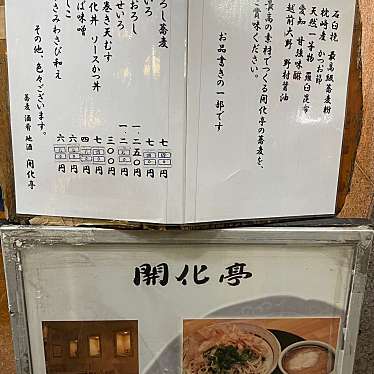 石臼挽 最高級蕎麦粉
枕崎産 かつお節
天然一等物 羅臼昆布
愛知 甘強味醂
越前大野 野村醤油
最高の素材でつくる開化亭の蕎麦を、
ご賞味ください。
お品書きの一部です
ろし蕎麦 七 円
いろ 七 円
おろし 一、二五〇円
せいろ 一、二 円
巻き天むす 三〇〇円
化丼 ソースかつ丼 七 円
ば味噌 四 円
しこ 六 円
さきみわさび和え 六 円
その他、色々ございます。
蕎麦 酒肴 地酒 開化亭
開化亭